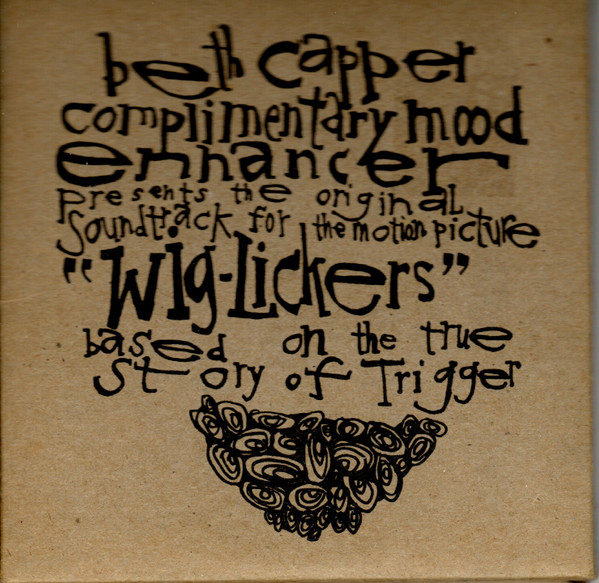 beth capper
complimentary mood
enhancer
presents the original
soundtrack for the motion picture
"Wig-Lickers"
based on the true
story of Trigger